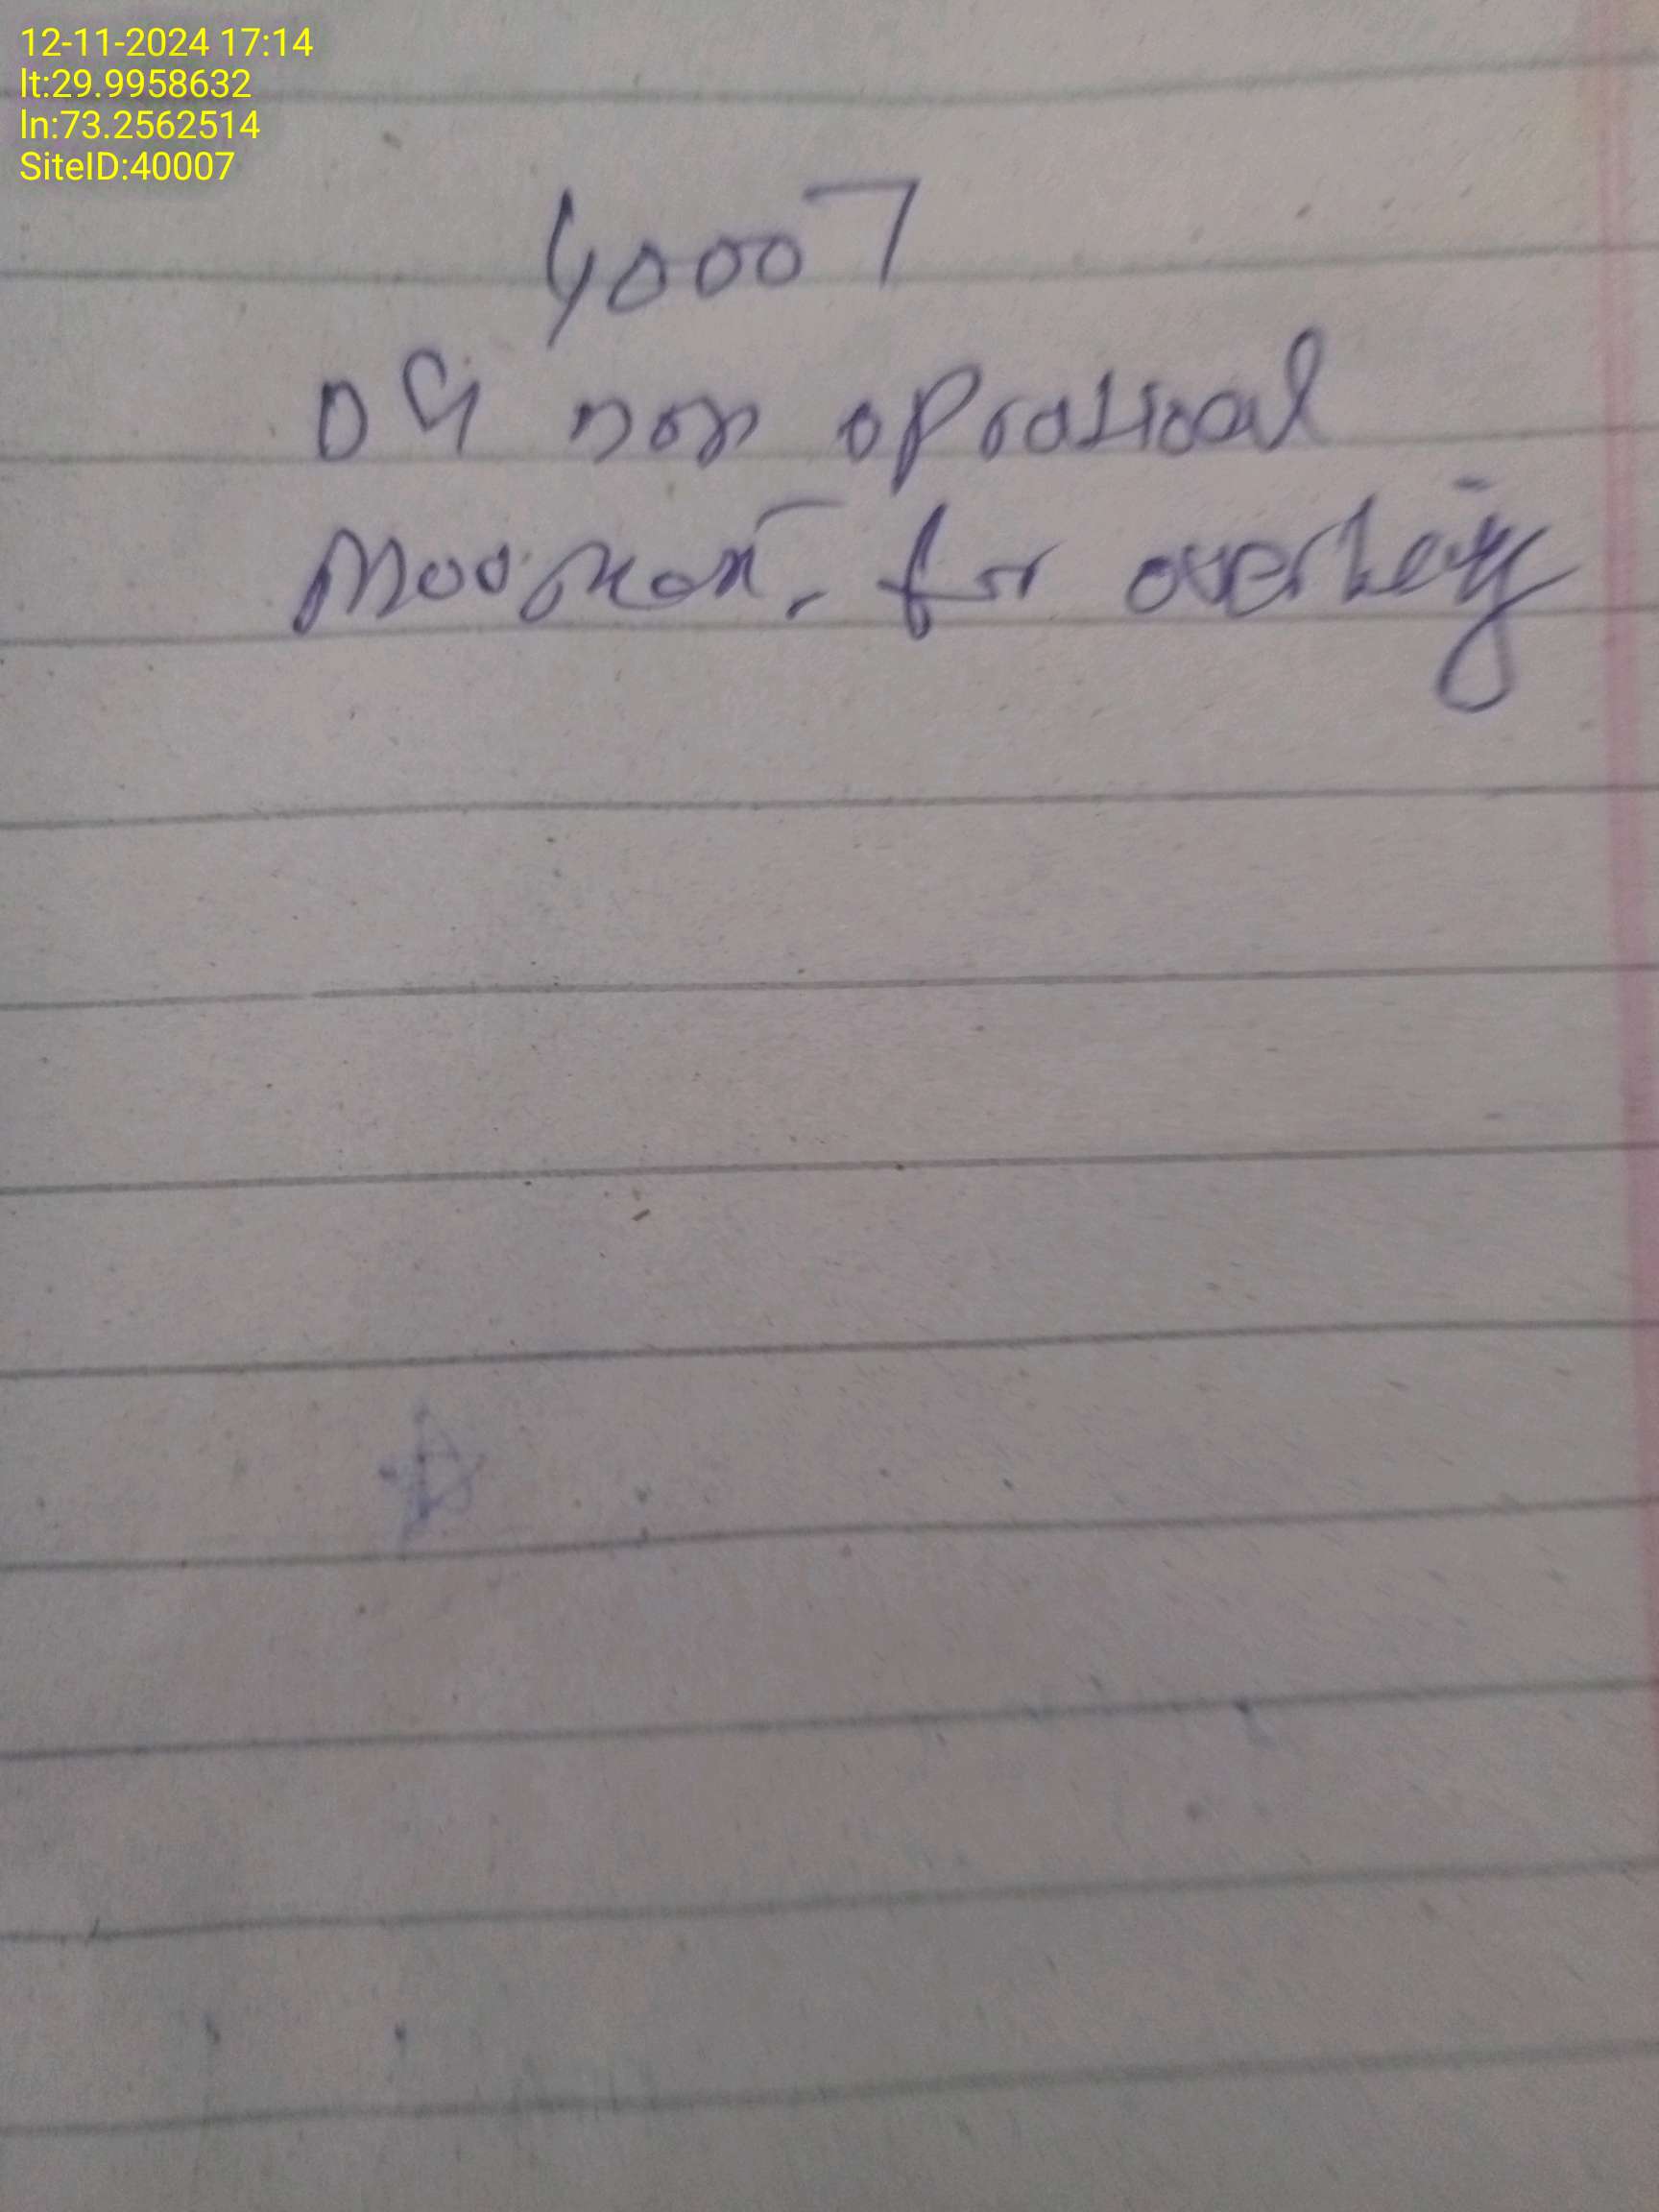 12-11-2024 17:14
lt:29.9958632
ln:73.2562514
SiteID:40007
40007
DG non oprational
for